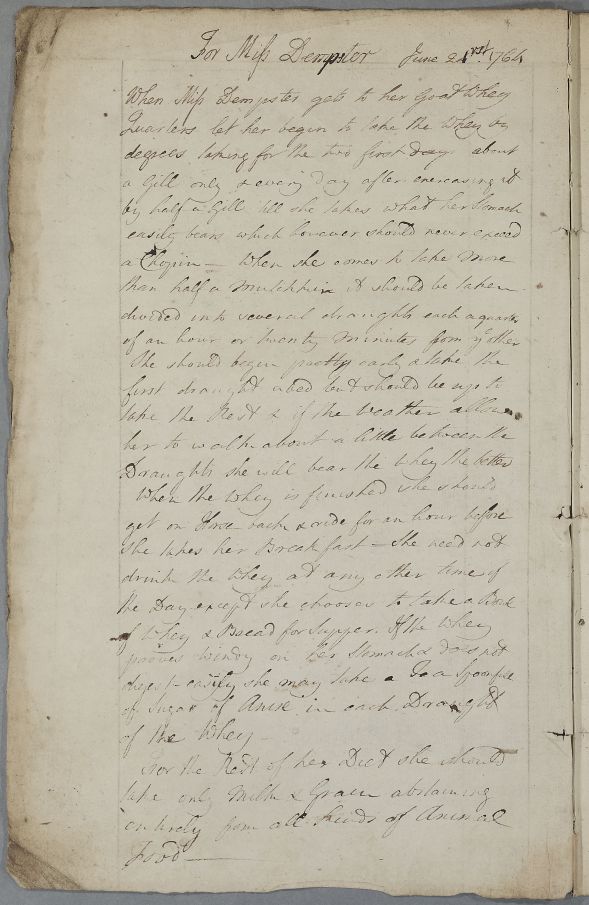 For Miss Dempster June 21rst 1764
When Miss Dempster gets to her Goat Whey
Quarters let her begin to take the Whey by
degrees taking for the two first days about
a Gill only & every Day after encreasing it
by half a Gill till she takes what her Stomach
easily bears which however should never exceed
a Chopin — When she comes to take more
than half a mutchkin it should be taken
divided into several draughts each a quarter
of an hour or twenty minutes from yͤ other
She should begin pretty early & take the
first draught abed but should be up to
take the Rest & if the Weather allow
her to walk about a little between the
Draughts she will bear the Whey the better
When the Whey is finished she should
get on Horse back & ride for an hour before
she takes her Breakfast — She need not
drink the Whey at any other time of
the Day except she chooses to take a
of Whey & Bread for Supper. If the Whey
prooves windy on her Stomach & does not
digest easily she may take a Tea Spoonfull
of Sugar of Anise in each Draught
of the Whey —
For the Rest of her Diet she should
take only Milk & Grain abstaining
entirely from all kinds of Animal
Food —